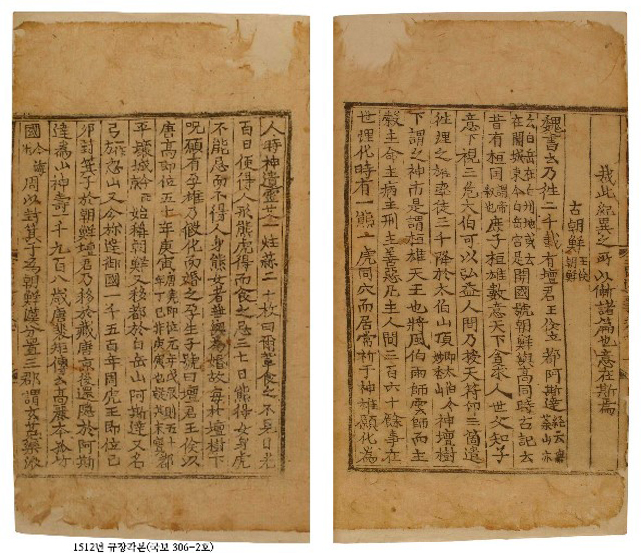 哉此紀異之所以慚諸篇也意在斯焉
古朝鮮 王儉朝鮮
魏書云乃徃二千載有壇君王儉立都阿斯逹 經云無葉山亦
云白岳在白州地或云在開城東今白岳宮是 開國號朝鮮與高同時古記云
昔有桓国 謂帝釋也 庶子桓雄數意天下貪求人世父知子
意下視三危太伯可以弘益人間乃授天符印三箇遣
徃理之雄率徒三千降於太伯山頂 即太伯今妙香山 神壇樹
下謂之神市是謂桓雄天王也將風伯雨師雲師而主
糓主命主病主刑主善惡凡主人間三百六十餘事在
世理化時有一熊一虎同穴而居常祈于神雄願化爲
人時神遺靈艾一炷蒜二十枚曰爾軰食之不見日光
百日便得人形熊虎得而食之忌三七日熊得女身虎
不能忌而不得人身熊女者無與爲婚故每於壇樹下
呪願有孕雄乃假化而婚之孕生子號曰壇君王倹以
唐髙即位五十年庚寅 唐堯即位元年戊辰則五十年丁巳非庚寅也疑其未實 都
平壤城 今西亰 始稱朝鮮又移都於白岳山阿斯逹又名
弓 一作方 忽山又今旀逹御國一千五百年周虎王即位己
卯封箕子於朝鮮壇君乃移於藏唐亰後還隱於阿斯
逹爲山神壽一千九百八歳唐裵矩傳云髙麗本孤竹
國 今海州 周以封箕子爲朝鮮漢分置三郡謂玄菟樂浪
1512년 규장각본(국보 306-2호)